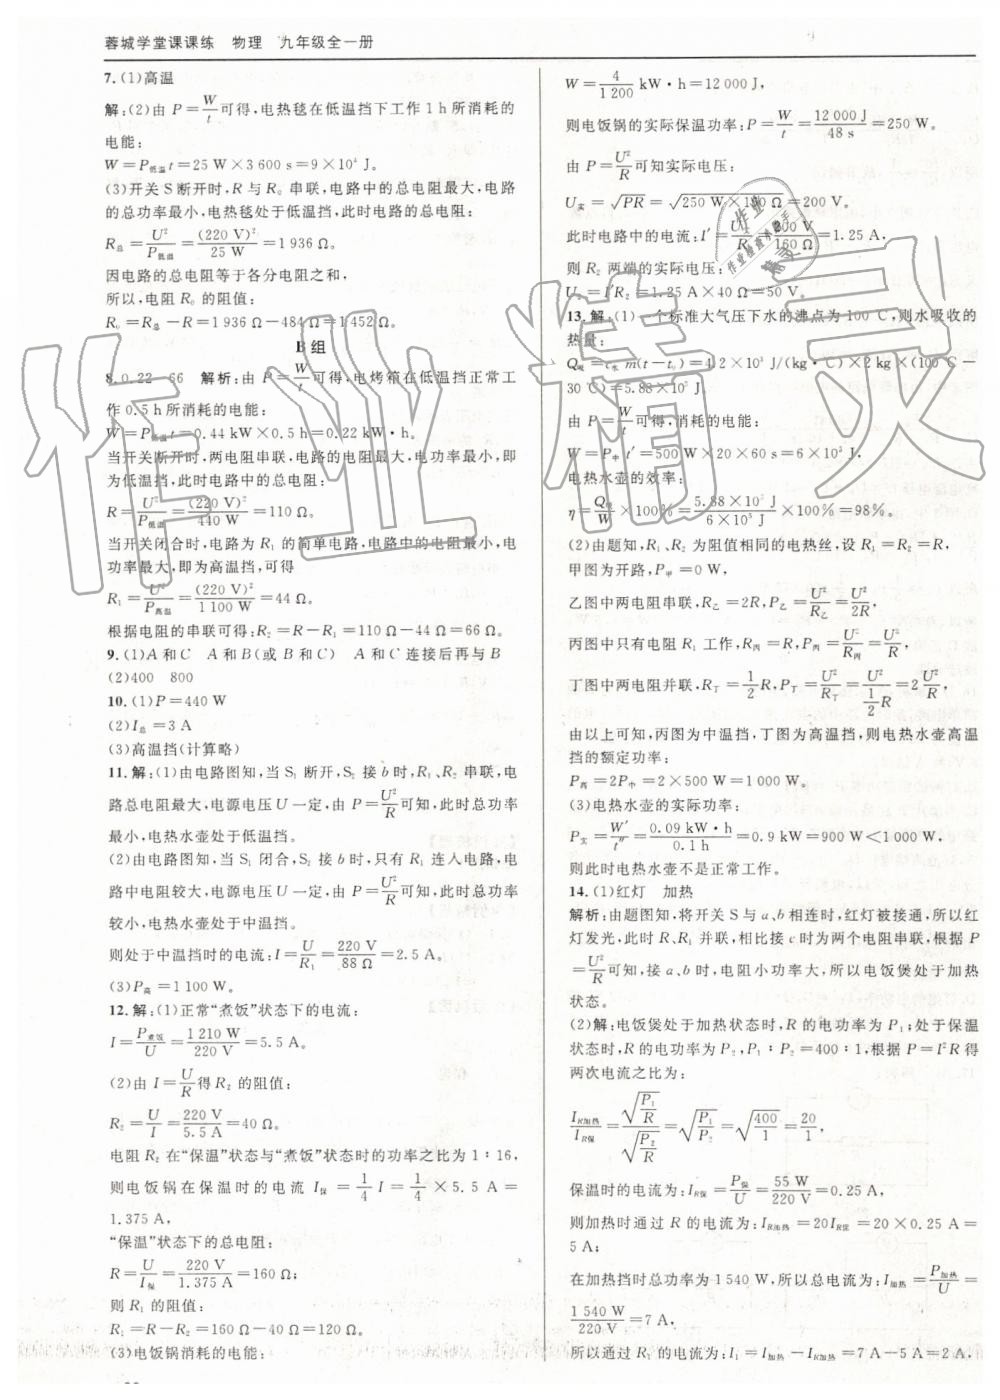 蓉城学堂课课练 物理 九年级全一册
7.(1)高温
解:(2)由 P=W/t可得,电热毯在低温挡下工作 1 h 所消耗的
电能:
W=P低温t=25 W×3 600 s=9×10⁴ J。
(3)开关 S 断开时,R 与 R₀ 串联,电路中的总电阻最大,电路
的总功率最小,电热毯处于低温挡,此时电路中的总电阻:
R总=U²/P低温=(220 V)²/25 W=1 936 Ω。
因电路的总电阻等于各分电阻之和,
所以,电阻 R₀ 的阻值:
R₀=R总-R=1 936 Ω-484 Ω=1 452 Ω。
B 组
8.0.22 66 解析:由 P=W/t可得,电烤箱在低温挡正常工
作 0.5 h 所消耗的电能:
W=P低温t=0.44 kW×0.5 h=0.22 kW·h。
当开关断开时,两电阻串联,电路的电阻最大,电功率最小,即
为低温挡,此时电路中的总电阻:
R=U²/P低温=(220 V)²/440 W=110 Ω。
当开关闭合时,电路为 R₁ 的简单电路,电路中的电阻最小,电
功率最大,即为高温挡,可得
R₁=U²/P高温=(220 V)²/1 100 W=44 Ω。
根据电阻的串联可得:R₂=R-R₁=110 Ω-44 Ω=66 Ω。
9.(1)A 和 C A 和 B(或 B 和 C) A 和 C 连接后再与 B
(2)400 800
10.(1)P=440 W
(2)I总=3 A
(3)高温挡(计算略)
11.解:(1)由电路图知,当 S₁ 断开,S₂ 接 b 时,R₁、R₂ 串联,电
路总电阻最大,电源电压 U 一定,由 P=U²/R可知,此时总功率
最小,电热水壶处于低温挡。
(2)由电路图知,当 S₁ 闭合,S₂ 接 b 时,只有 R₁ 连入电路,电
路中电阻较大,电源电压 U 一定,由 P=U²/R可知,此时总功率
较小,电热水壶处于中温挡。
则处于中温挡时的电流:I=U/R₁=220 V/88 Ω=2.5 A。
(3)P高=1 100 W。
12.解:(1)正常“煮饭”状态下的电流:
I=P煮饭/U=1 210 W/220 V=5.5 A。
(2)由 I=U/R得 R₂ 的阻值:
R₂=U/I=220 V/5.5 A=40 Ω。
电阻 R₂ 在“保温”状态与“煮饭”状态时的功率之比为 1∶16,
则电饭锅在保温时的电流 I保=1/4 I=1/4×5.5 A=
1.375 A,
“保温”状态下的总电阻:
R=U/I保=220 V/1.375 A=160 Ω;
则 R₁ 的阻值:
R₁=R-R₂=160 Ω-40 Ω=120 Ω。
(3)电饭锅消耗的电能:
W=4/1 200 kW·h=12 000 J,
则电饭锅的实际保温功率:P=W/t=12 000 J/48 s=250 W。
由 P=U²/R可知实际电压:
U实=√PR=√250 W×160 Ω=200 V。
此时电路中的电流:I′=U实/R=200 V/160 Ω=1.25 A,
则 R₂ 两端的实际电压:
U₂=I′R₂=1.25 A×40 Ω=50 V。
13.解:(1)一个标准大气压下水的沸点为 100 ℃,则水吸收的
热量:
Q吸=c水m(t-t₀)=4.2×10³ J/(kg·℃)×2 kg×(100 ℃-
30 ℃)=5.88×10⁵ J。
由 P=W/t可得,消耗的电能:
W=P中t′=500 W×20×60 s=6×10⁵ J。
电热水壶的效率:
η=Q吸/W×100%=5.88×10⁵ J/6×10⁵ J×100%=98%。
(2)由题知,R₁、R₂ 为阻值相同的电热丝,设 R₁=R₂=R,
甲图为开路,P甲=0 W,
乙图中两电阻串联,R乙=2R,P乙=U²/R乙=U²/2R,
丙图中只有电阻 R₁ 工作,R丙=R,P丙=U²/R丙=U²/R,
丁图中两电阻并联,R丁=1/2 R,P丁=U²/R丁=U²/(1/2 R)=2U²/R,
由以上可知,丙图为中温挡,丁图为高温挡,则电热水壶高温
挡的额定功率:
P高=2P中=2×500 W=1 000 W。
(3)电热水壶的实际功率:
P实=W′/t″=0.09 kW·h/0.1 h=0.9 kW=900 W<1 000 W。
则此时电热水壶不是正常工作。
14.(1)红灯 加热
解析:由题图知,将开关 S 与 a、b 相连时,红灯被接通,所以红
灯发光,此时 R、R₁ 并联,相比接 c 时为两个电阻串联,根据 P
=U²/R可知,接 a、b 时,电阻小功率大,所以电饭煲处于加热
状态。
(2)解:电饭煲处于加热状态时,R 的电功率为 P₁;处于保温
状态时,R 的电功率为 P₂,P₁∶P₂=400∶1,根据 P=I²R 得
两次电流之比为:
IR加热/IR保=√(P₁/R)/√(P₂/R)=√(P₁/P₂)=√(400/1)=20/1,
保温时的电流为:IR保=P保/U=55 W/220 V=0.25 A,
则加热时通过 R 的电流为:IR加热=20IR保=20×0.25 A=
5 A;
在加热挡时总功率为 1 540 W,所以总电流为:I加热=P加热/U=
1 540 W/220 V=7 A,
所以通过 R₁ 的电流为:I₁=I加热-IR加热=7 A-5 A=2 A,
作业精灵